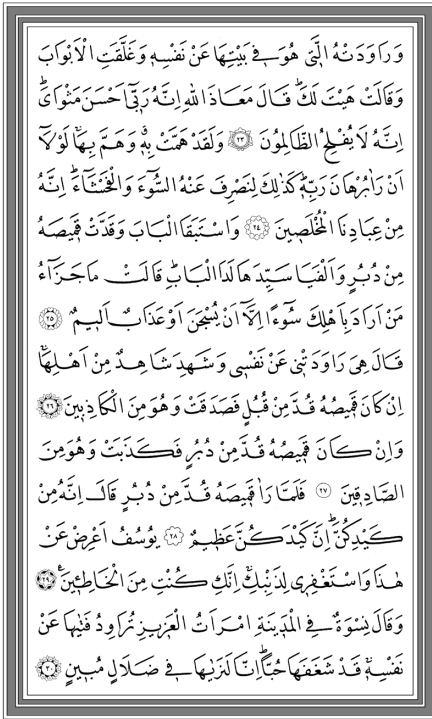 وَرَاوَدَتْهُ الَّتٖي هُوَ فٖي بَيْتِهَا عَنْ نَفْسِهٖ وَغَلَّقَتِ الْاَبْوَابَ
وَقَالَتْ هَيْتَ لَكَؕ قَالَ مَعَاذَ اللّٰهِ اِنَّهُ رَبّٖٓي اَحْسَنَ مَثْوَايَؕ
اِنَّهُ لَا يُفْلِحُ الظَّالِمُونَ ﴿٢٣﴾ وَلَقَدْ هَمَّتْ بِهٖۚ وَهَمَّ بِهَاۚ لَوْلَٓا
اَنْ رَاٰ بُرْهَانَ رَبِّهٖؕ كَذٰلِكَ لِنَصْرِفَ عَنْهُ السُّٓوءَ وَالْفَحْشَٓاءَؕ اِنَّهُ
مِنْ عِبَادِنَا الْمُخْلَصٖينَ ﴿٢٤﴾ وَاسْتَبَقَا الْبَابَ وَقَدَّتْ قَمٖيصَهُ
مِنْ دُبُرٍ وَاَلْفَيَا سَيِّدَهَا لَدَا الْبَابِؕ قَالَتْ مَا جَزَٓاءُ
مَنْ اَرَادَ بِاَهْلِكَ سُٓوءًا اِلَّٓا اَنْ يُسْجَنَ اَوْ عَذَابٌ اَلٖيمٌ ﴿٢٥﴾
قَالَ هِيَ رَاوَدَتْنٖي عَنْ نَفْسٖي وَشَهِدَ شَاهِدٌ مِنْ اَهْلِهَاۚ
اِنْ كَانَ قَمٖيصُهُ قُدَّ مِنْ قُبُلٍ فَصَدَقَتْ وَهُوَ مِنَ الْكَاذِبٖينَ ﴿٢٦﴾
وَاِنْ كَانَ قَمٖيصُهُ قُدَّ مِنْ دُبُرٍ فَكَذَبَتْ وَهُوَ مِنَ
الصَّادِقٖينَ ﴿٢٧﴾ فَلَمَّا رَاٰ قَمٖيصَهُ قُدَّ مِنْ دُبُرٍ قَالَ اِنَّهُ مِنْ
كَيْدِكُنَّؕ اِنَّ كَيْدَكُنَّ عَظٖيمٌ ﴿٢٨﴾ يُوسُفُ اَعْرِضْ عَنْ
هٰذَا وَاسْتَغْفِرٖي لِذَنْبِكِۚ اِنَّكِ كُنْتِ مِنَ الْخَاطِـٖٔينَ ﴿٢٩﴾
وَقَالَ نِسْوَةٌ فِي الْمَدٖينَةِ امْرَاَتُ الْعَزٖيزِ تُرَاوِدُ فَتٰيهَا عَنْ
نَفْسِهٖۚ قَدْ شَغَفَهَا حُبًّاؕ اِنَّا لَنَرٰيهَا فٖي ضَلَالٍ مُبٖينٍ ﴿٣٠﴾